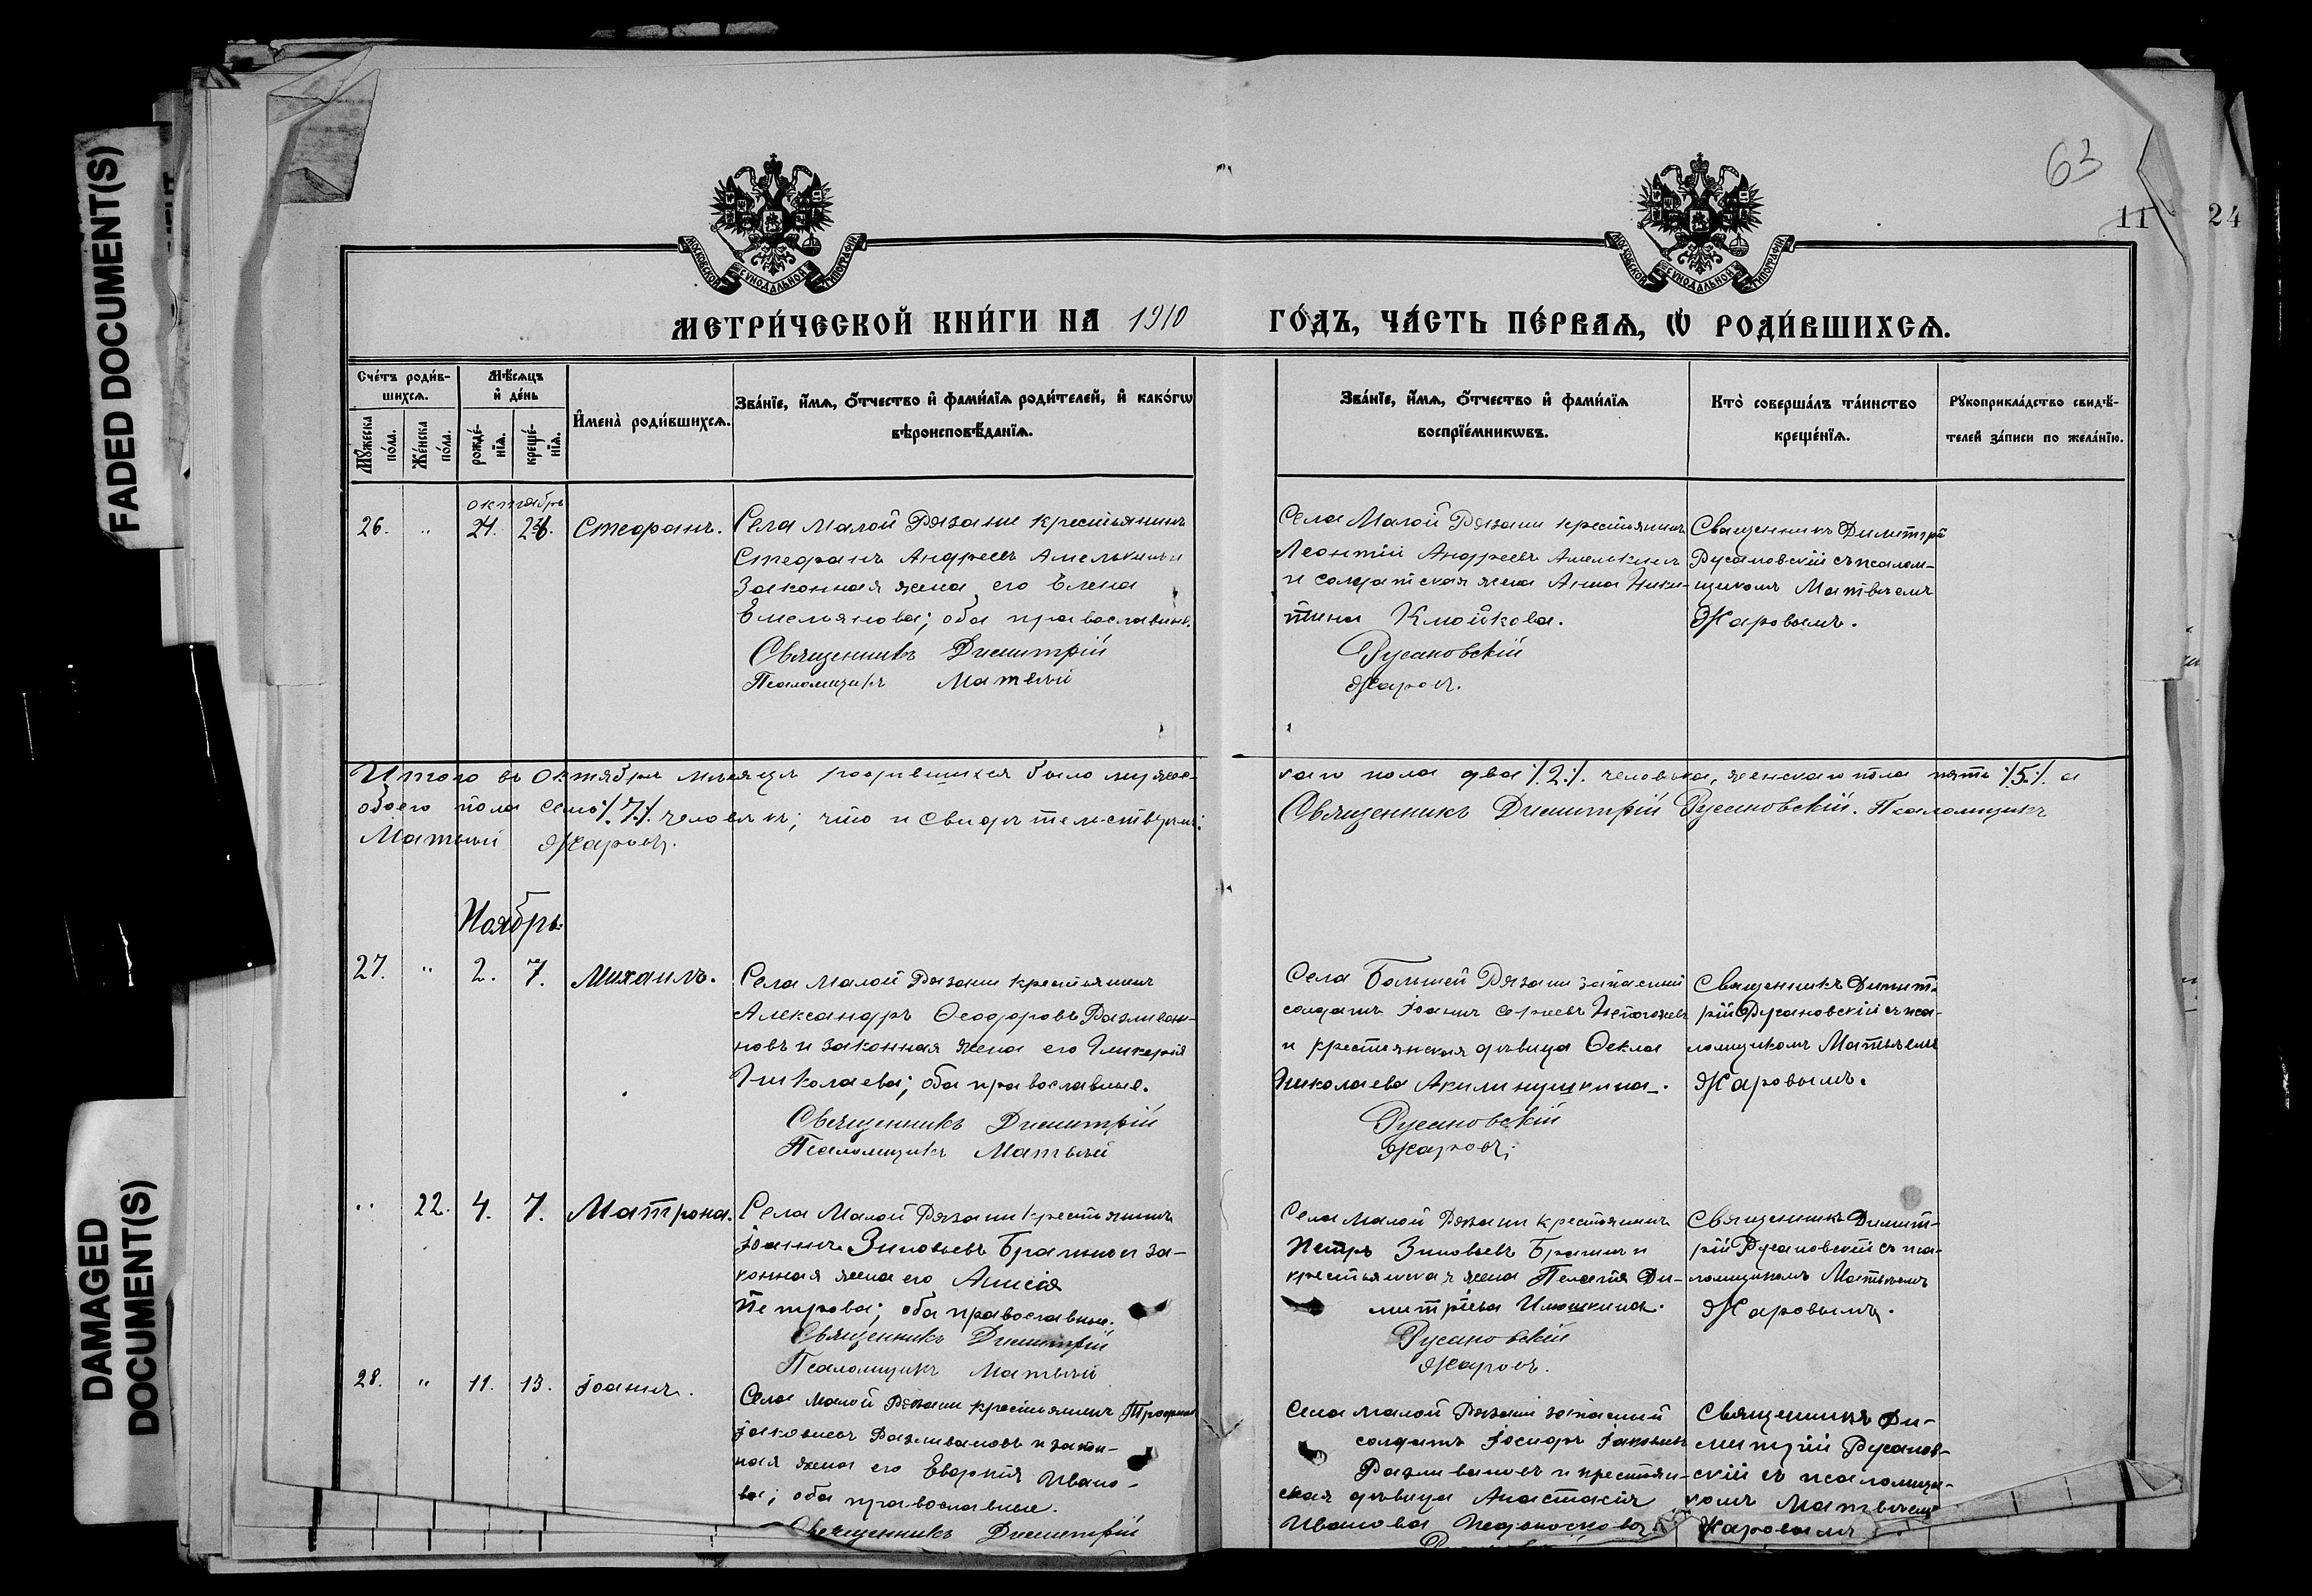 FADED DOCUMENT(S)
DAMAGED
DOCUMENT(S)
63
11 24
МОСКОВСКОЙ СѴНОДАЛЬНОЙ ТИПОГРАФІИ
МОСКОВСКОЙ СѴНОДАЛЬНОЙ ТИПОГРАФІИ
МЕТРИ́ЧЕСКОЙ КНИ́ГИ НА 1910 ГО́ДЪ, ЧА́СТЬ ПЕ́РВАѦ, Ѡ҆ РОДИ́ВШИХСѦ.
Сче́тъ роди́в-
шихсѧ.
Мꙋ́жеска по́ла.
Же́нска по́ла.
Мѣ́сѧцъ
и҆ де́нь
рожде́-
нїѧ.
креще́-
нїѧ.
И҆мена̀ роди́вшихсѧ.
Зва́нїе, и҆́мѧ, ѻ҆́тчество и҆ фами́лїѧ роди́телей, и҆ како́гѡ
вѣроисповѣ́данїѧ.
Зва́нїе, и҆́мѧ, ѻ҆́тчество и҆ фами́лїѧ
воспрїе́мникѡвъ.
Кто̀ соверша́лъ та́инство
креще́нїѧ.
Рꙋкоприкла́дство свидѣ́-
телей за́писи по жела́нїю.
октябрь
26. " 24. 26. Стефанъ.
Села Малой Рязани крестьянинъ
Стефанъ Андреевъ Амелькинъ и
законная жена его Елена
Емельянова; оба православные.
Священникъ Димитрій
Псаломщикъ Матвѣй
Села Малой Рязани крестьянинъ
Леонтій Андреевъ Амелькинъ
и солдатская жена Анна Ники-
тина
Русановскій
Жаровъ.
Священникъ Димитрій
Русановскій съ псалом-
щикомъ Матвѣемъ
Жаровымъ.
Итого въ Октябрѣ мѣсяцѣ родившихся было мужес-
каго пола два ٪ 2 ٪ человѣка, женскаго пола пять ٪ 5 ٪ а
обоего пола семь ٪ 7 ٪ человѣкъ; что и свидѣтельствуемъ:
Священникъ Димитрій Русановскій. Псаломщикъ
Матвѣй Жаровъ.
Ноябрь
27. " 2. 7. Михаилъ.
Села Малой Рязани крестьянинъ
Александръ Ѳеодоровъ Разливан-
новъ и законная жена его Гликерія
Николаева; оба православные.
Священникъ Димитрій
Псаломщикъ Матвѣй
Села Большей Рязани запасный
солдатъ Іоаннъ Сергеевъ
и крестьянская дѣвица Ѳекла
Николаева Акилинушкина.
Русановскій
Жаровъ.
Священникъ Димит-
рій Русановскій съ пса-
ломщикомъ Матвѣемъ
Жаровымъ.
" 22. 4. 7. Матрона.
Села Малой Рязани крестьянинъ
Іоаннъ Зиновьевъ Братинъ и за-
конная жена его Анисія
Петрова; оба православные.
Священникъ Димитрій
Псаломщикъ Матвѣй
Села Малой Рязани крестьянинъ
Петръ Зиновьевъ Братинъ и
крестьянская жена Пелагія Ди-
митріева Илюшкина.
Русановскій
Жаровъ.
Священникъ Димит-
рій Русановскій съ пса-
ломщикомъ Матвѣемъ
Жаровымъ.
28. " 11. 13. Іоаннъ.
Села Малой Рязани крестьянинъ Трофимъ
Іаковлевъ Разливановъ и закон-
ная жена его Евдокія Ивано-
ва; оба православные.
Священникъ Димитрій
Села Малой Рязани запасный
солдатъ Іосифъ Іаковлевъ
Разливановъ и крестьян-
ская дѣвица Анастасія
Иванова
Священникъ Ди-
митрій Русанов-
скій съ псаломщи-
комъ Матвѣемъ
Жаровымъ